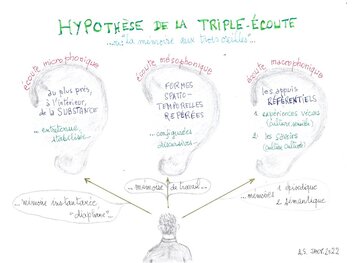 HYPOTHÈSE DE LA TRIPLE-ÉCOUTE
"la mémoire aux trois oreilles"...
écoute microphonique
au plus près, à
l'intérieur,
de la SUBSTANCE
... entretenue,
stabilisée...
écoute mésophonique
FORMES
SPATIO-
TEMPORELLES
REPÉRÉES
... configurées
discursives...
écoute macrophonique
les appuis
RÉFÉRENTIELS
1. expériences vécues
2. les savoirs
...mémoire instantanée
"diaphane"...
...mémoire de travail...
...mémoires
1 épisodique
2 sémantique